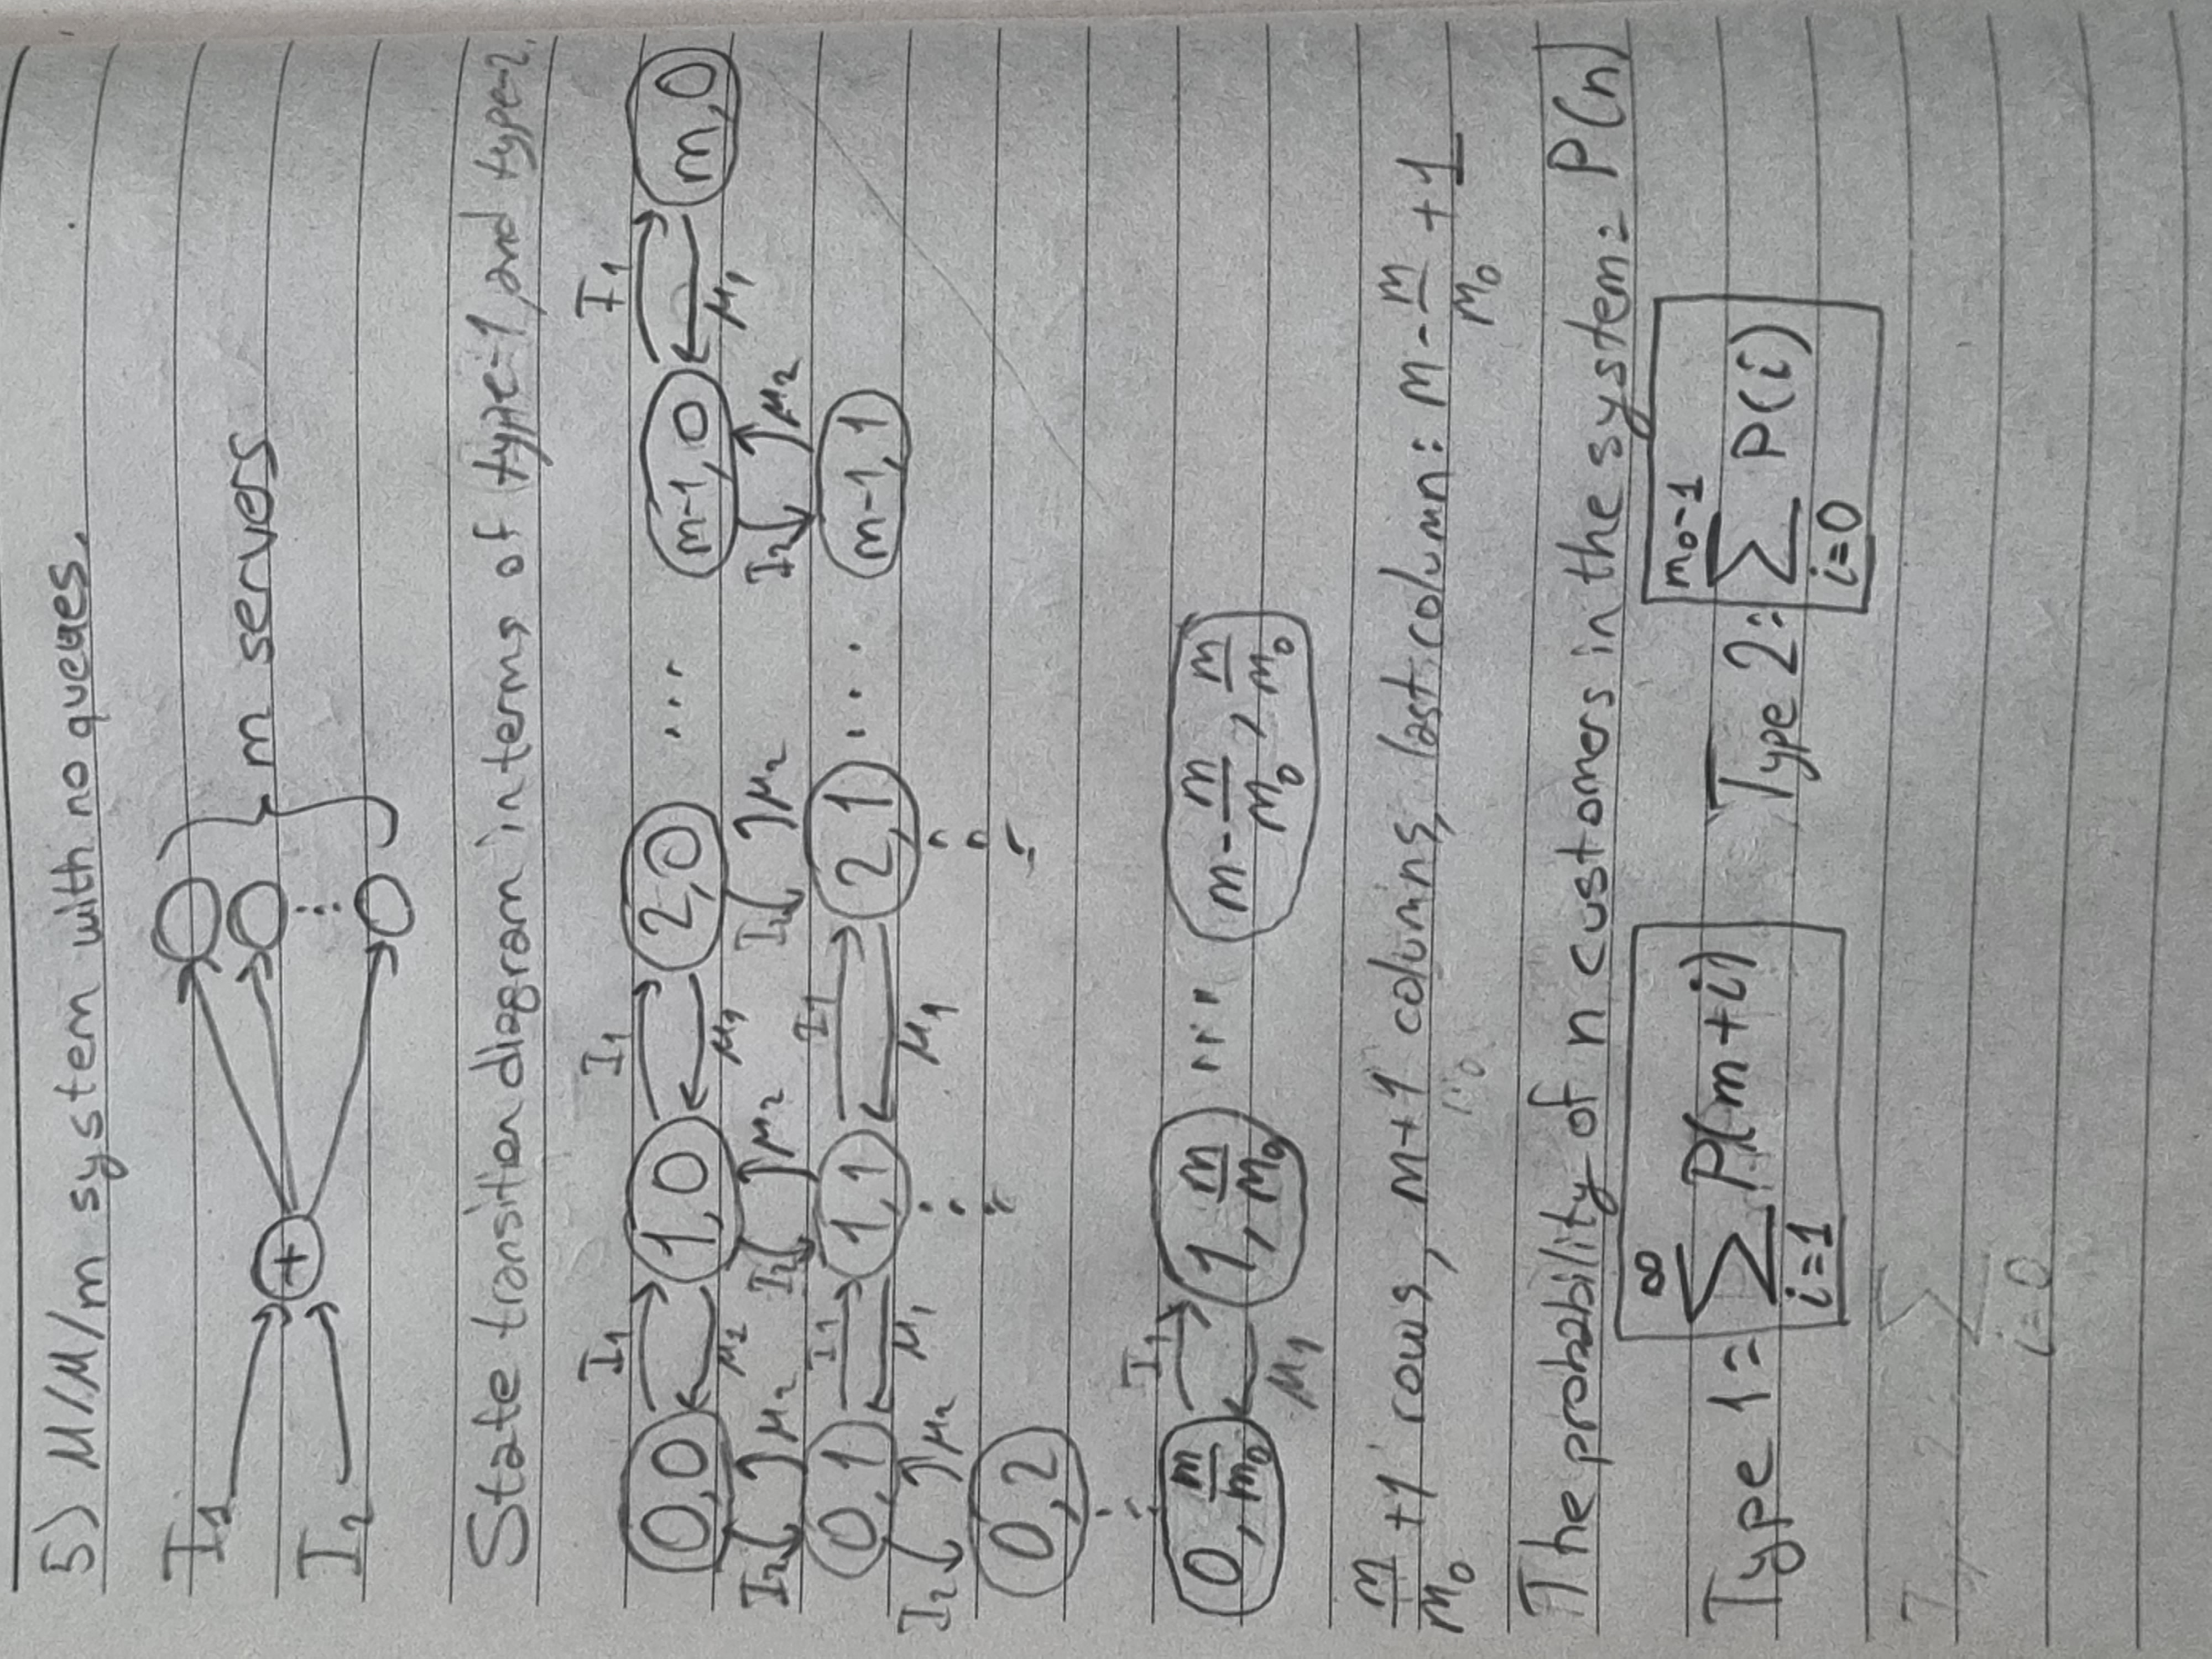 5) M/M/m system with no queues.
I₁
I₂
+
m servers
State transition diagram in terms of type-1 and type-2.
I₁ I₁ I₁
0,0 1,0 2,0 ... m-1,0 m,0
μ₁ μ₁ μ₁
I₂ μ₂ I₂ μ₂ I₂ μ₂ I₂ μ₂
I₁ I₁
0,1 1,1 2,1 ... m-1,1
μ₁ μ₁
I₂ μ₂
0,2
I₁
0, m/m₀ 1, m/m₀ ... m - m/m₀, m/m₀
μ₁
m/m₀ +1 rows, m+1 columns, last column: m - m/m₀ + 1
The probability of n customers in the system: P(n)
Type 1 = ∞ Σ i=1 P(m+i) Type 2: m₀-1 Σ i=0 P(i)
Σ
i=0